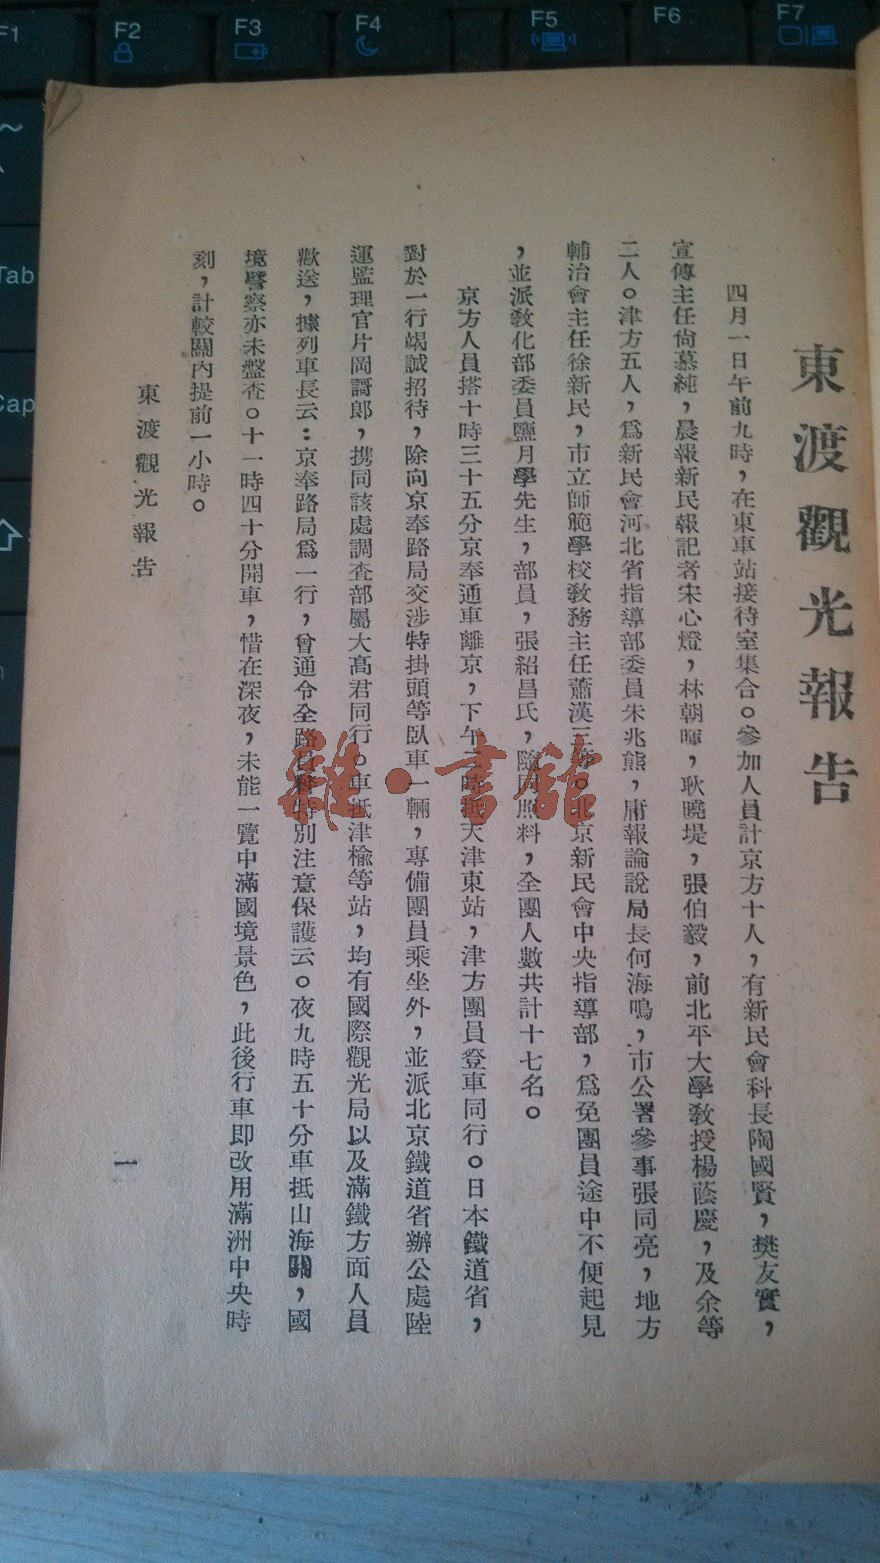 東渡觀光報告
四月一日午前九時，在東車站接待室集合。參加人員計京方十人，有新民會科長陶國賢，樊友實，
宣傳主任尙慕純，晨報新民報記者宋心燈，林朝暉，耿曉堤，張伯毅，前北平大學敎授楊蔭慶，及余等
二人。津方五人，爲新民會河北省指導部委員朱兆熊，庸報論說局長何海鳴，市公署參事張同亮，地方
輔治會主任徐新民，市立師範學校敎務主任蕭漢三等。北京新民會中央指導部，爲免團員途中不便起見
，並派敎化部委員鹽月學先生，部員，張紹昌氏，隨同照料，全團人數共計十七名。
京方人員搭十時三十五分京奉通車離京，下午二時抵天津東站，津方團員登車同行。日本鐵道省，
對於一行竭誠招待，除向京奉路局交涉特掛頭等臥車一輛，專備團員乘坐外，並派北京鐵道省辦公處陸
運監理官片岡謌郎，携同該處調查部屬大高君同行。車抵津楡等站，均有國際觀光局以及滿鐵方面人員
歡送，據列車長云：京奉路局爲一行，曾通令全路員警特別注意保護云。夜九時五十分車抵山海關，國
境警察亦未盤查。十一時四十分開車，惜在深夜，未能一覽中滿國境景色，此後行車即改用滿洲中央時
刻，計較關內提前一小時。
東渡觀光報告
一
雜·書館
F1
F2
F3
F4
F5
F6
F7
Tab
Cap